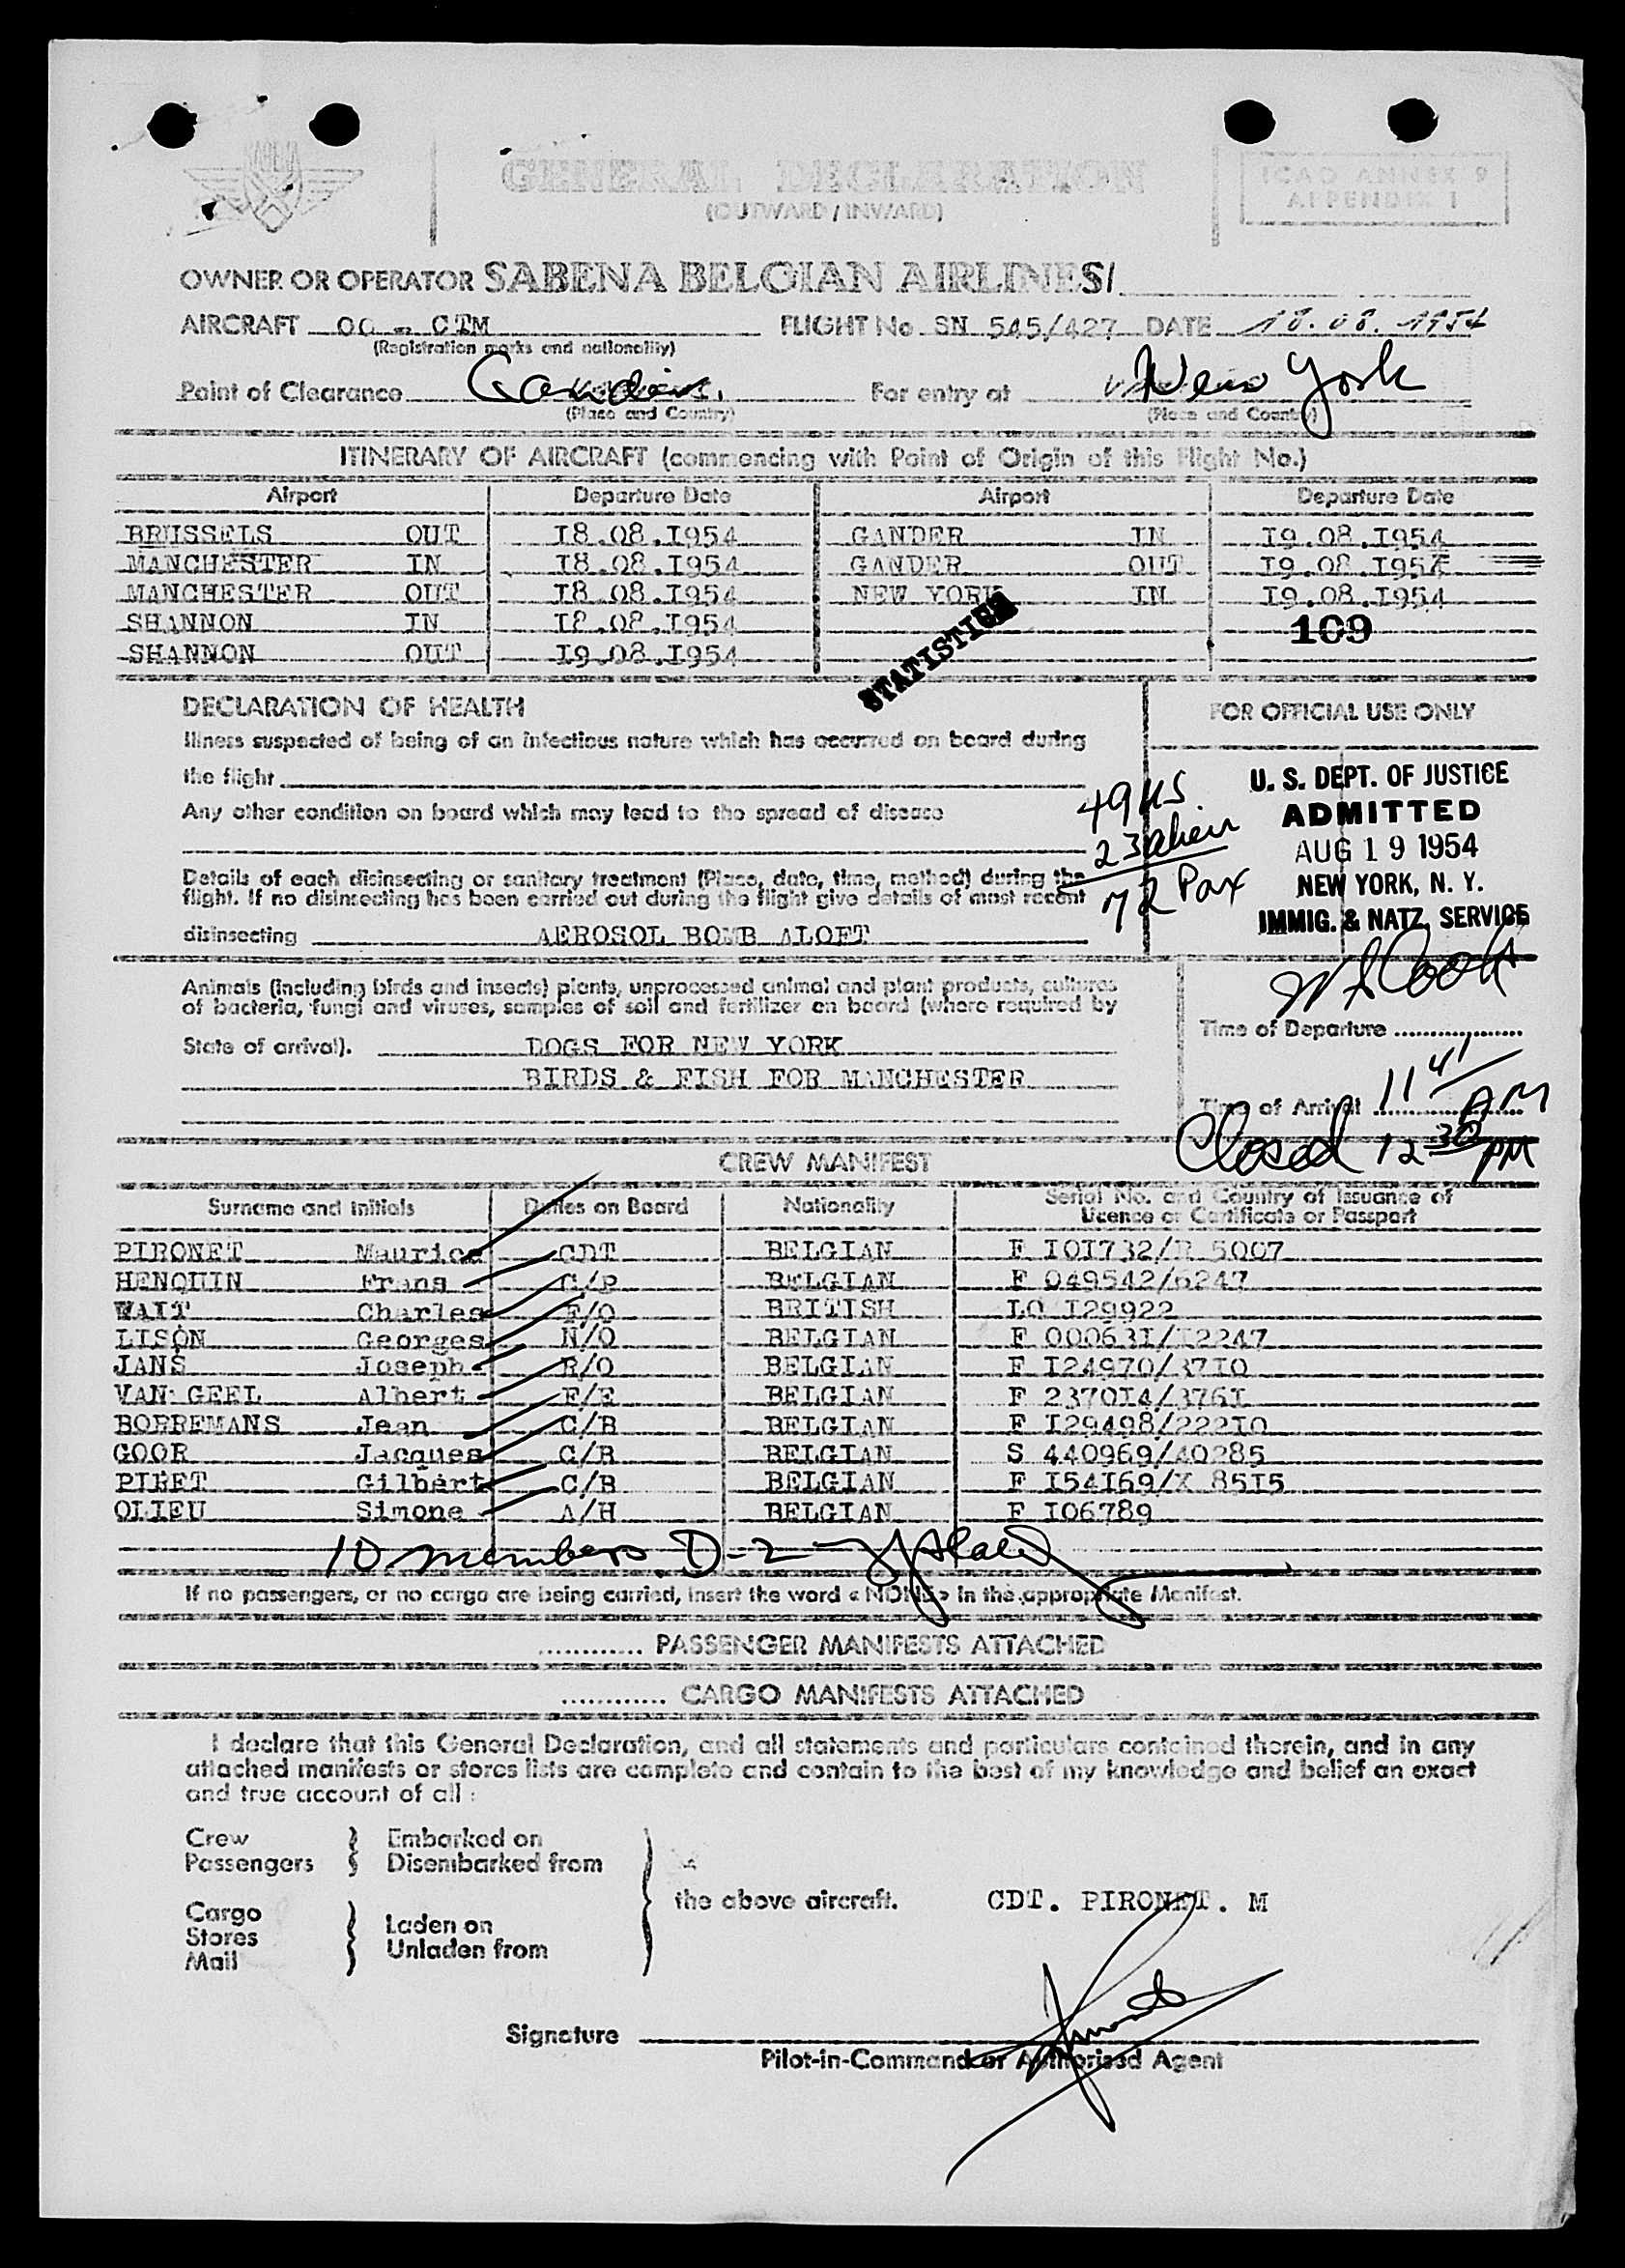 SABENA
GENERAL DECLARATION
(OUTWARD / INWARD)
ICAO ANNEX 9
APPENDIX I
OWNER OR OPERATOR SABENA BELGIAN AIRLINES/
AIRCRAFT OO - CTM FLIGHT No SN 545/427 DATE 18.08.1954
(Registration marks and nationality)
Point of Clearance For entry at New York
(Place and Country) (Place and Country)
ITINERARY OF AIRCRAFT (commencing with Point of Origin of this Flight No.)
Airport Departure Date Airport Departure Date
BRUSSELS OUT I8.08.I954 GANDER IN I9.08.I954
MANCHESTER IN I8.08.I954 GANDER OUT I9.08.I954
MANCHESTER OUT I8.08.I954 NEW YORK IN I9.08.I954
SHANNON IN I8.08.I954 109
SHANNON OUT I9.08.I954
STATISTICS
DECLARATION OF HEALTH
FOR OFFICIAL USE ONLY
Illness suspected of being of an infectious nature which has occurred on board during
the flight
Any other condition on board which may lead to the spread of disease
49 US
23 alien
72 Pax
U. S. DEPT. OF JUSTICE
ADMITTED
AUG 19 1954
NEW YORK, N. Y.
IMMIG. & NATZ. SERVICE
Details of each disinsecting or sanitary treatment (Place, date, time, method) during the
flight. If no disinsecting has been carried out during the flight give details of most recent
disinsecting AEROSOL BOMB ALOFT
Animals (including birds and insects) plants, unprocessed animal and plant products, cultures
of bacteria, fungi and viruses, samples of soil and fertilizer on board (where required by
State of arrival). DOGS FOR NEW YORK
BIRDS & FISH FOR MANCHESTER
Time of Departure
Time of Arrival 11 41 AM
Closed 12 30 PM
CREW MANIFEST
Surname and Initials Duties on Board Nationality Serial No. and Country of Issuance of
Licence or Certificate or Passport
PIRONET Maurice CDT BELGIAN F I0I732/R 5007
HENQUIN Frans C/P BELGIAN F 049542/6247
WAIT Charles F/O BRITISH LO I29922
LISON Georges N/O BELGIAN F 00063I/I2247
JANS Joseph R/O BELGIAN F I24970/37I0
VAN GEEL Albert F/E BELGIAN F 2370I4/376I
BORREMANS Jean C/B BELGIAN F I29498/222I0
GOOR Jacques C/B BELGIAN S 440969/40285
PIRET Gilbert C/B BELGIAN F I54I69/X 85I5
OLIEU Simone A/H BELGIAN F I06789
10 members D-2
If no passengers, or no cargo are being carried, insert the word « NONE » in the appropriate Manifest.
............ PASSENGER MANIFESTS ATTACHED
............ CARGO MANIFESTS ATTACHED
I declare that this General Declaration, and all statements and particulars contained therein, and in any
attached manifests or stores lists are complete and contain to the best of my knowledge and belief an exact
and true account of all :
Crew Embarked on
Passengers Disembarked from
the above aircraft. CDT. PIRONET. M
Cargo
Stores Laden on
Mail Unladen from
Signature
Pilot-in-Command or Authorised Agent